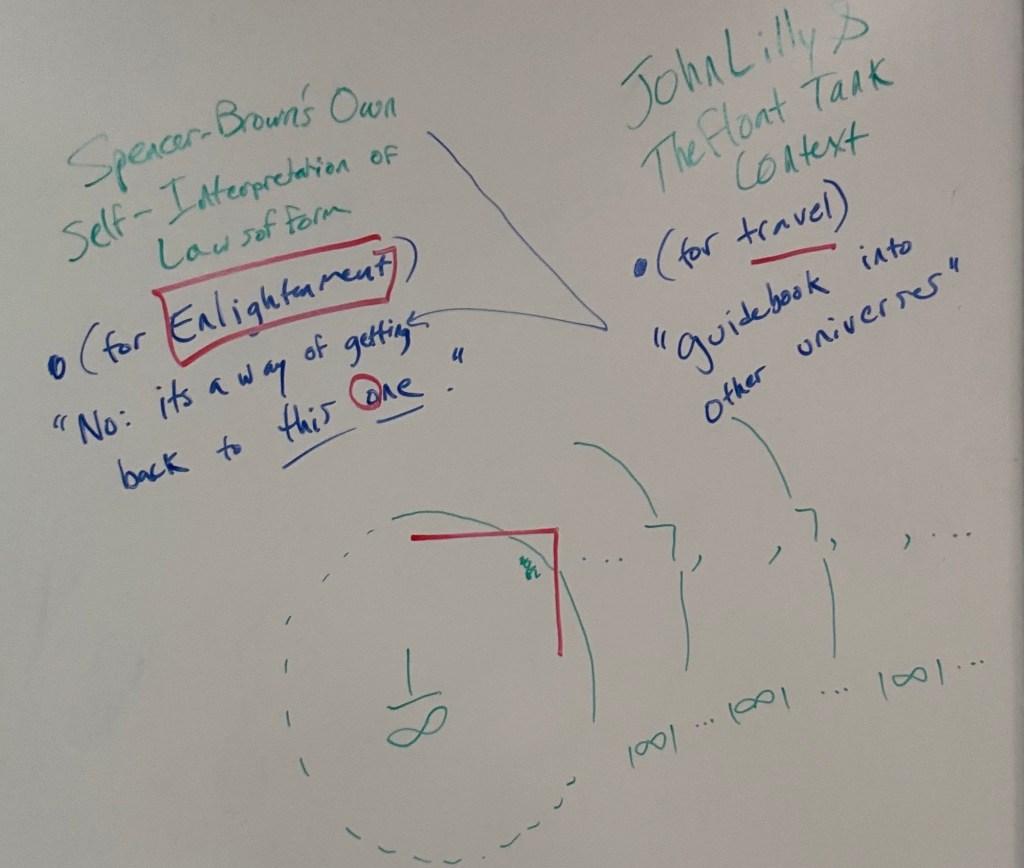 Spencer-Brown's Own
Self-Interpretation of
Laws of form
• (for Enlightenment)
"No: its a way of getting
back to this one."
John Lilly &
The Float Tank
Context
• (for travel)
"guidebook into
other universes"
... ㄱ, , ㄱ, , ...
1
∞
1001 ... 1001 ... 1001 ...